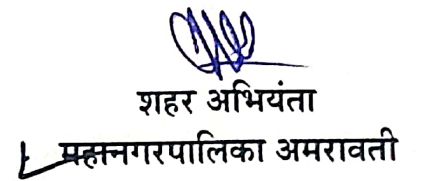 शहर अभियंता
महानगरपालिका अमरावती